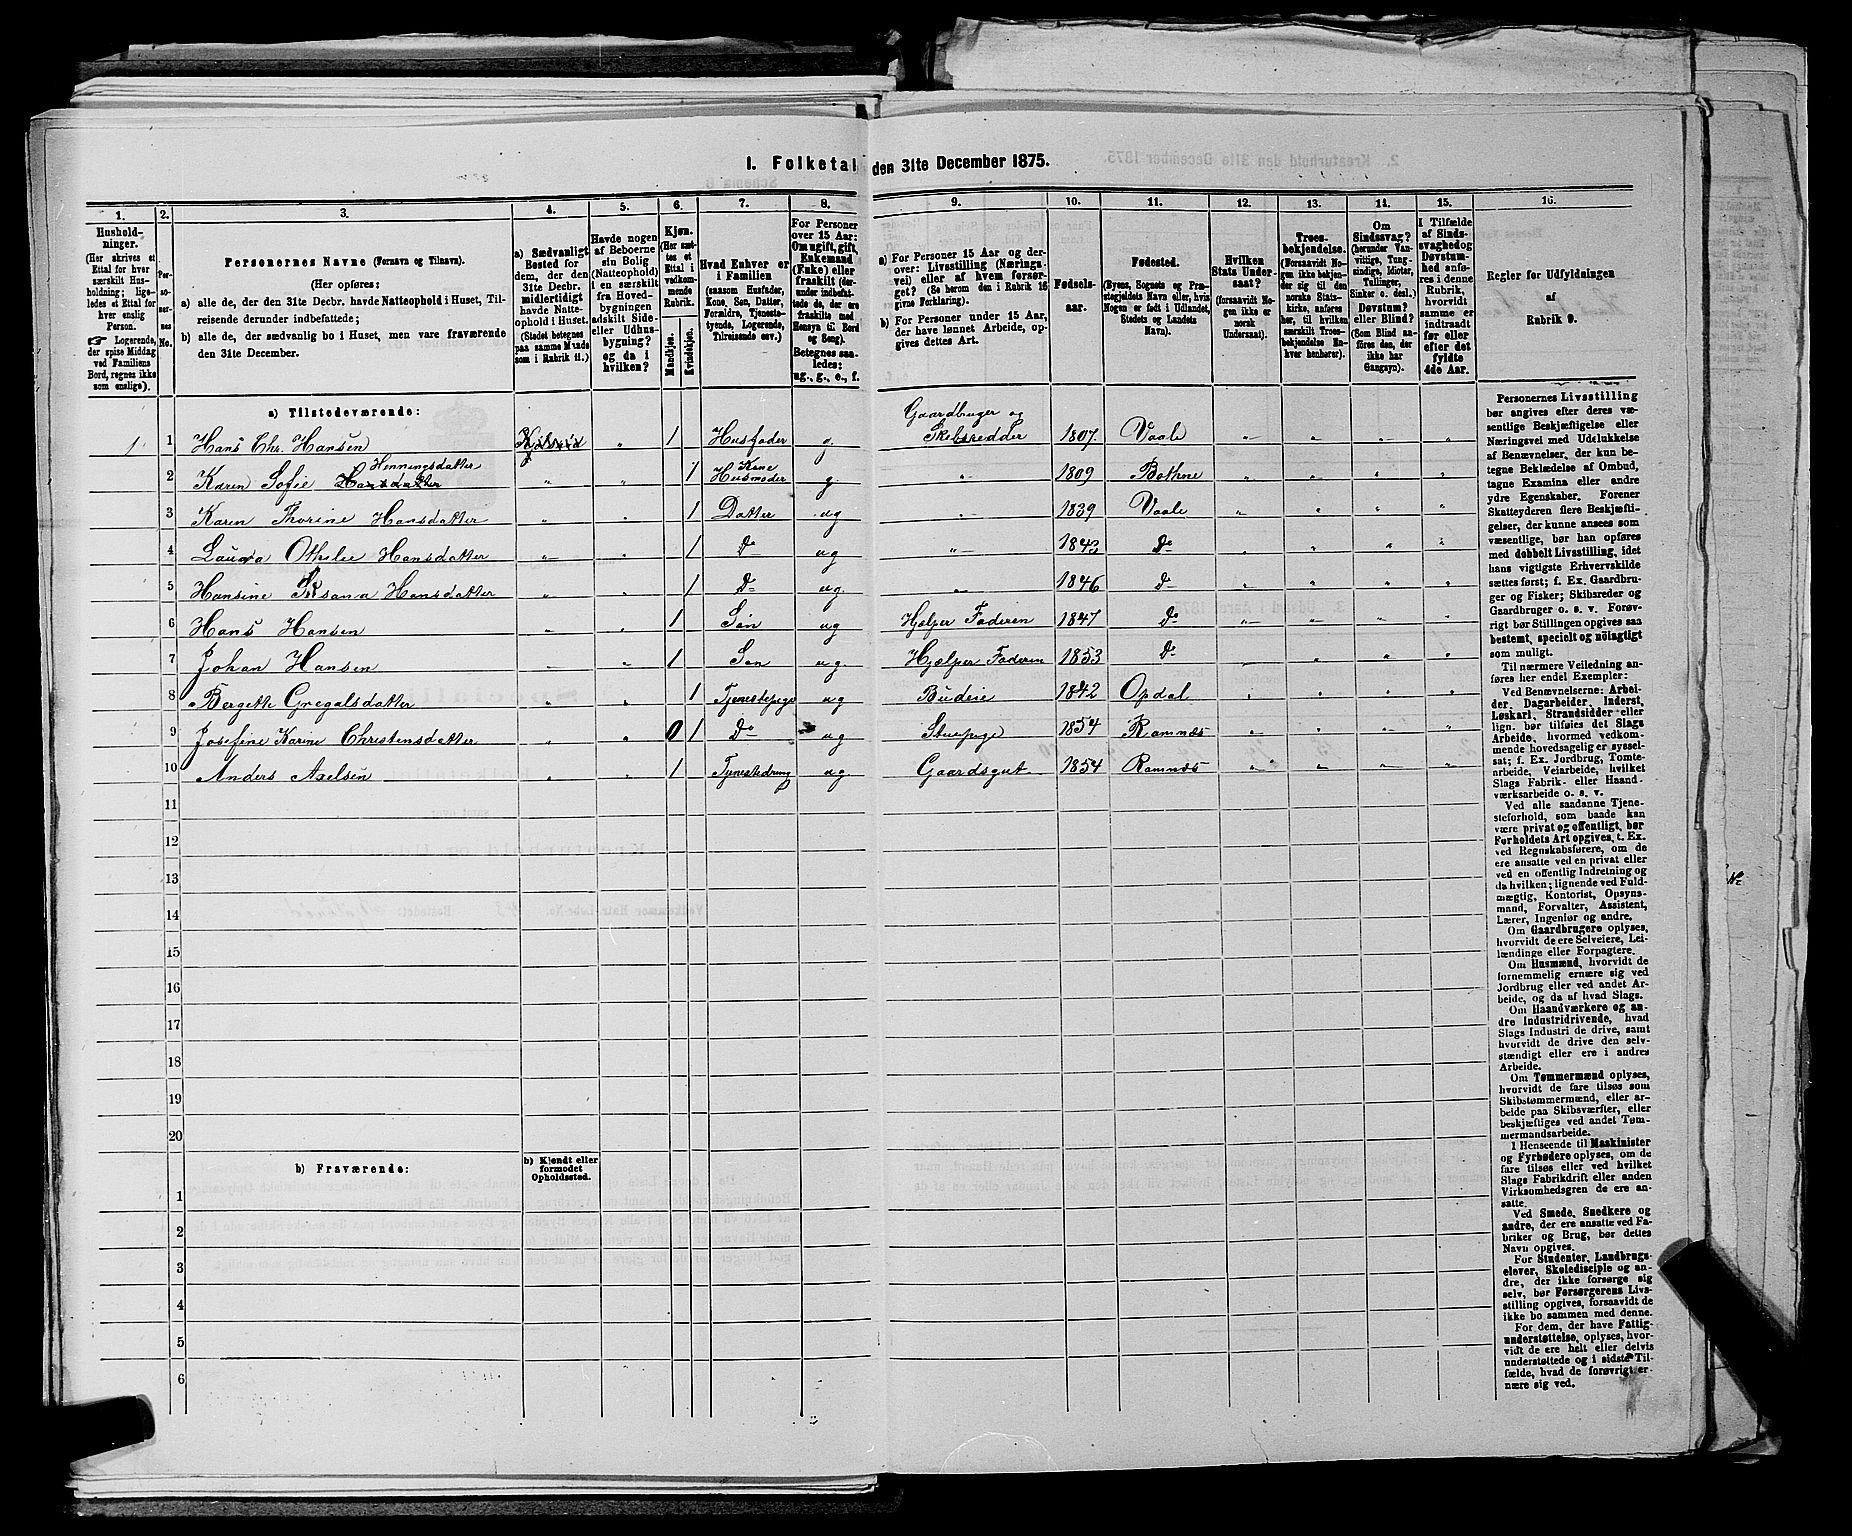 1. Folketal den 31te December 1875.
1. 2. 3. 4. 5. 6. 7. 8. 9. 10. 11. 12. 13. 14. 15. 16.
Hushold-
ninger.
(Her skrives et
Ettal for hver
særskilt Hus-
holdning; lige-
ledes et Ettal for
hver enslig
Person.
☞ Logerende,
der spise Middag
ved Familiens
Bord, regnes ikke
som enslige).
Per-
soner-
nes
No.
Personernes Navne (Fornavn og Tilnavn).
(Her opføres:
a) alle de, der den 31te Decbr. havde Natteophold i Huset, Til-
reisende derunder indbefattede;
b) alle de, der sædvanlig bo i Huset, men vare fraværende
den 31te December.
a) Sædvanligt
Bosted for
dem, der den
31te Decbr.
midlertidigt
havde Natte-
ophold i Huset.
(Stedet betegnes
paa samme Maade
som i Rubrik 11.)
Havde nogen
af Beboerne
sin Bolig
(Natteophold)
i en særskilt
fra Hoved-
bygningen
adskilt Side-
eller Udhus-
bygning?
og da i
hvilken?
Kjøn.
(Her sæt-
tes et
Ettal i
vedkom-
mende
Rubrik.
Mandkjøn.
Kvindekjøn.
Hvad Enhver er
i Familien
(saasom Husfader,
Kone, Søn, Datter,
Forældre, Tjeneste-
tyende, Logerende,
Tilreisende osv.)
For Personer
over 15 Aar:
Om ugift, gift,
Enkemand
(Enke) eller
fraskilt (der-
under indbefat-
tede de, der ere
fraskilte med
Hensyn til Bord
og Seng).
Betegnes saa-
ledes:
ug., g., e., f.
a) For Personer 15 Aar og der-
over: Livsstilling (Nærings-
vei) eller af hvem forsør-
get? (Se herom den i Rubrik 16
givne Forklaring).
b) For Personer under 15 Aar,
der have lønnet Arbeide, op-
gives dettes Art.
Fødsels-
aar.
Fødested.
(Byens, Sognets og Præ-
stegjeldets Navn eller, hvis
Nogen er født i Udlandet,
Stedets og Landets
Navn).
Hvilken
Stats Under-
saat?
(forsaavidt No-
gen ikke er
norsk
Undersaat).
Troes-
bekjendelse.
(Forsaavidt No-
gen ikke bekjen-
der sig til den
norske Stats-
kirke, anføres
her, til hvilken
særskilt Troes-
bekjendelse En-
hver henhører).
Om
Sindssvag?
(herunder Van-
vittige, Tung-
sindige, Idioter,
Tullinger,
Sinker o. desl.)
Døvstum?
eller Blind?
(Som Blind an-
føres den, der
ikke har
Gangsyn).
I Tilfælde
af Sinds-
svaghed og
Døvstum-
hed anfø-
res i denne
Rubrik,
hvorvidt
samme er
indtraadt
før eller
efter det
fyldte
4de Aar.
Regler for Udfyldningen
af
Rubrik 9.
a) Tilstedeværende:
1 1 Hans Chr. Hansen " 1 Husfader g Gaardbruger og Skibsredder 1807 Vaale
2 Karen Sofie Henningsdatter " " 1 Kone Husmoder g " 1809 Bothne
3 Karen Thorine Hansdatter " " 1 Datter ug " 1839 Vaale
4 Laura Othelie Hansdatter " " 1 Do ug " 1843 Do
5 Hansine Hansdatter " " 1 Do ug. " 1846 Do
6 Hans Hansen " " 1 Søn ug Hjelper Faderen 1847 Do
7 Johan Hansen " " 1 Søn ug. Hjælper Faderen 1853 Do
8 Bergith Gregalsdatter " " 1 Tjenestepige ug Budeie 1842 Opdal
9 Josefine Karine Christensdatter " " 0 1 Do ug Stuepige 1854 Ramnæs
10 Anders Axelsen " " 1 Tjenestedreng ug Gaardsgut 1854 Ramnæs
11
12
13
14
15
16
17
18
19
20
b) Fraværende:
b) Kjendt eller
formodet
Opholdssted.
1
2
3
4
5
6
Personernes Livsstilling
bør angives efter deres væ-
sentlige Beskjæftigelse eller
Næringsvei med Udelukkelse
af Benævnelser, der kun be-
tegne Beklædelse af Ombud,
tagne Examina eller andre
ydre Egenskaber. Forener
Skatteyderen flere Beskjæfti-
gelser, der kunne ansees som
væsentlige, bør han opføres
med dobbelt Livsstilling, idet
hans vigtigste Erhvervskilde
sættes først; f. Ex. Gaardbru-
ger og Fisker; Skibsreder og
Gaardbruger o. s. v. Forøv-
rigt bør Stillingen opgives saa
bestemt, specielt og nøiagtigt
som muligt.
Til nærmere Veiledning an-
føres her endel Exempler:
Ved Benævnelserne: Arbei-
der, Dagarbeider, Inderst,
Løskarl, Strandsidder eller
lign. bør tilføies det Slags
Arbeide, hvormed vedkom-
mende hovedsagelig er syssel-
sat; f. Ex. Jordbrug, Tomte-
arbeide, Veiarbeide, hvilket
Slags Fabrik- eller Haand-
værksarbeide o. s. v.
Ved alle saadanne Tjene-
steforhold, som baade kan
være privat og offentligt, bør
Forholdets Art opgives, t. Ex.
ved Regnskabsførere, om de
ere ansatte ved en privat eller
ved en offentlig Indretning og
da hvilken; lignende ved Fuld-
mægtig, Kontorist, Opsyns-
mand, Forvalter, Assistent,
Lærer, Ingeniør og andre.
Om Gaardbrugere oplyses,
hvorvidt de ere Selveiere, Lei-
lændinge eller Forpagtere.
Om Husmænd, hvorvidt de
fornemmelig ernære sig ved
Jordbrug eller ved andet Ar-
beide, og da af hvad Slags.
Om Haandværkere og an-
dre Industridrivende, hvad
Slags Industri de drive, samt
hvorvidt de drive den selv-
stændigt eller ere i andres
Arbeide.
Om Tømmermænd oplyses,
hvorvidt de fare tilsøs som
Skibstømmermænd, eller ar-
beide paa Skibsværfter, eller
beskjæftiges ved andet Tøm-
mermandsarbeide.
I Henseende til Maskinister
og Fyrbødere oplyses, om de
fare tilsøs eller ved hvilket
Slags Fabrikdrift eller anden
Virksomhedsgren de ere an-
satte.
Ved Smede, Snedkere og
andre, der ere ansatte ved Fa-
briker og Brug, bør dettes
Navn opgives.
For Studenter, Landbrugs-
elever, Skoledisciple og an-
dre, der ikke forsørge sig
selv, bør Forsørgerens Livs-
stilling opgives, forsaavidt de
ikke bo sammen med denne.
For dem, der have Fattig-
understøttelse, oplyses, hvor-
vidt de ere helt eller delvis
understøttede og i sidste Til-
fælde, hvad de forøvrigt er-
nære sig ved.